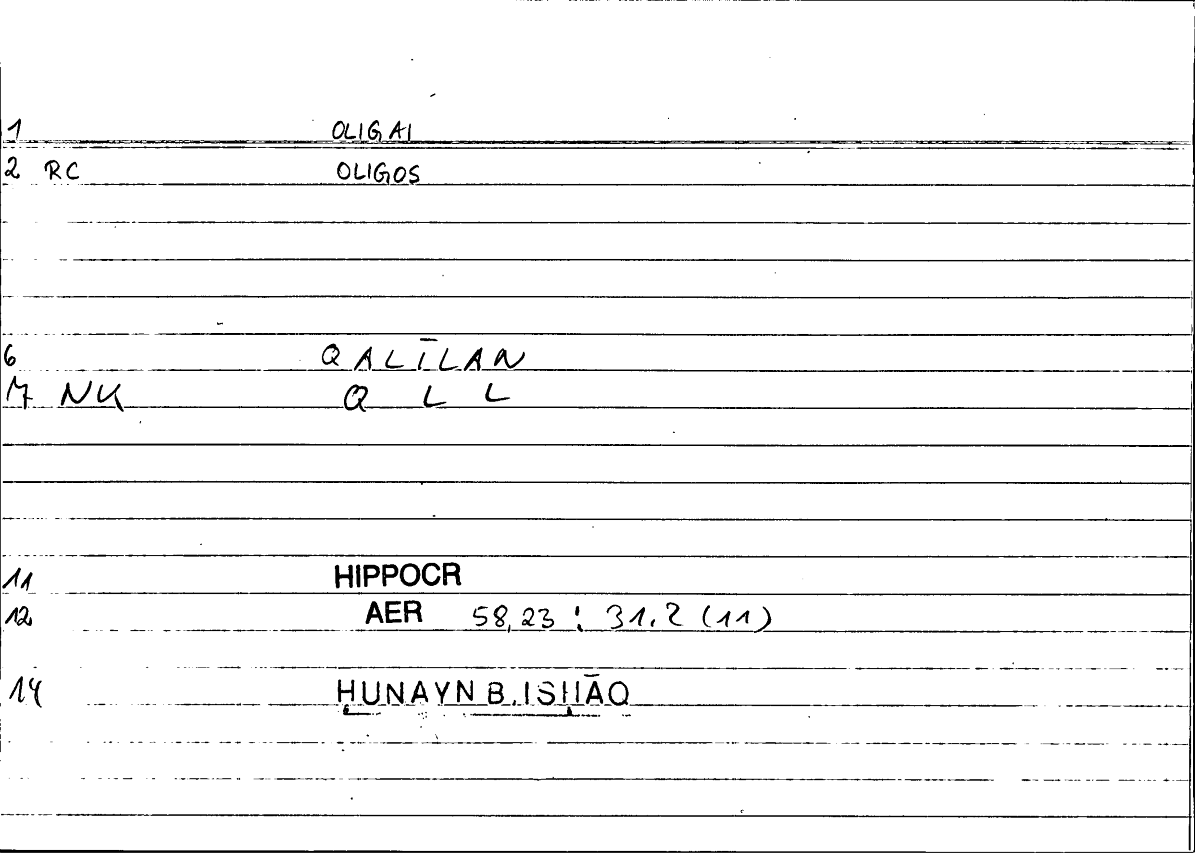 1 OLIGAI
2 RC OLIGOS
6 QALĪLAN
7 NK Q L L
11 HIPPOCR
12 AER 58,23 : 31.2 (11)
14 ḤUNAYN B. ISḤĀQ